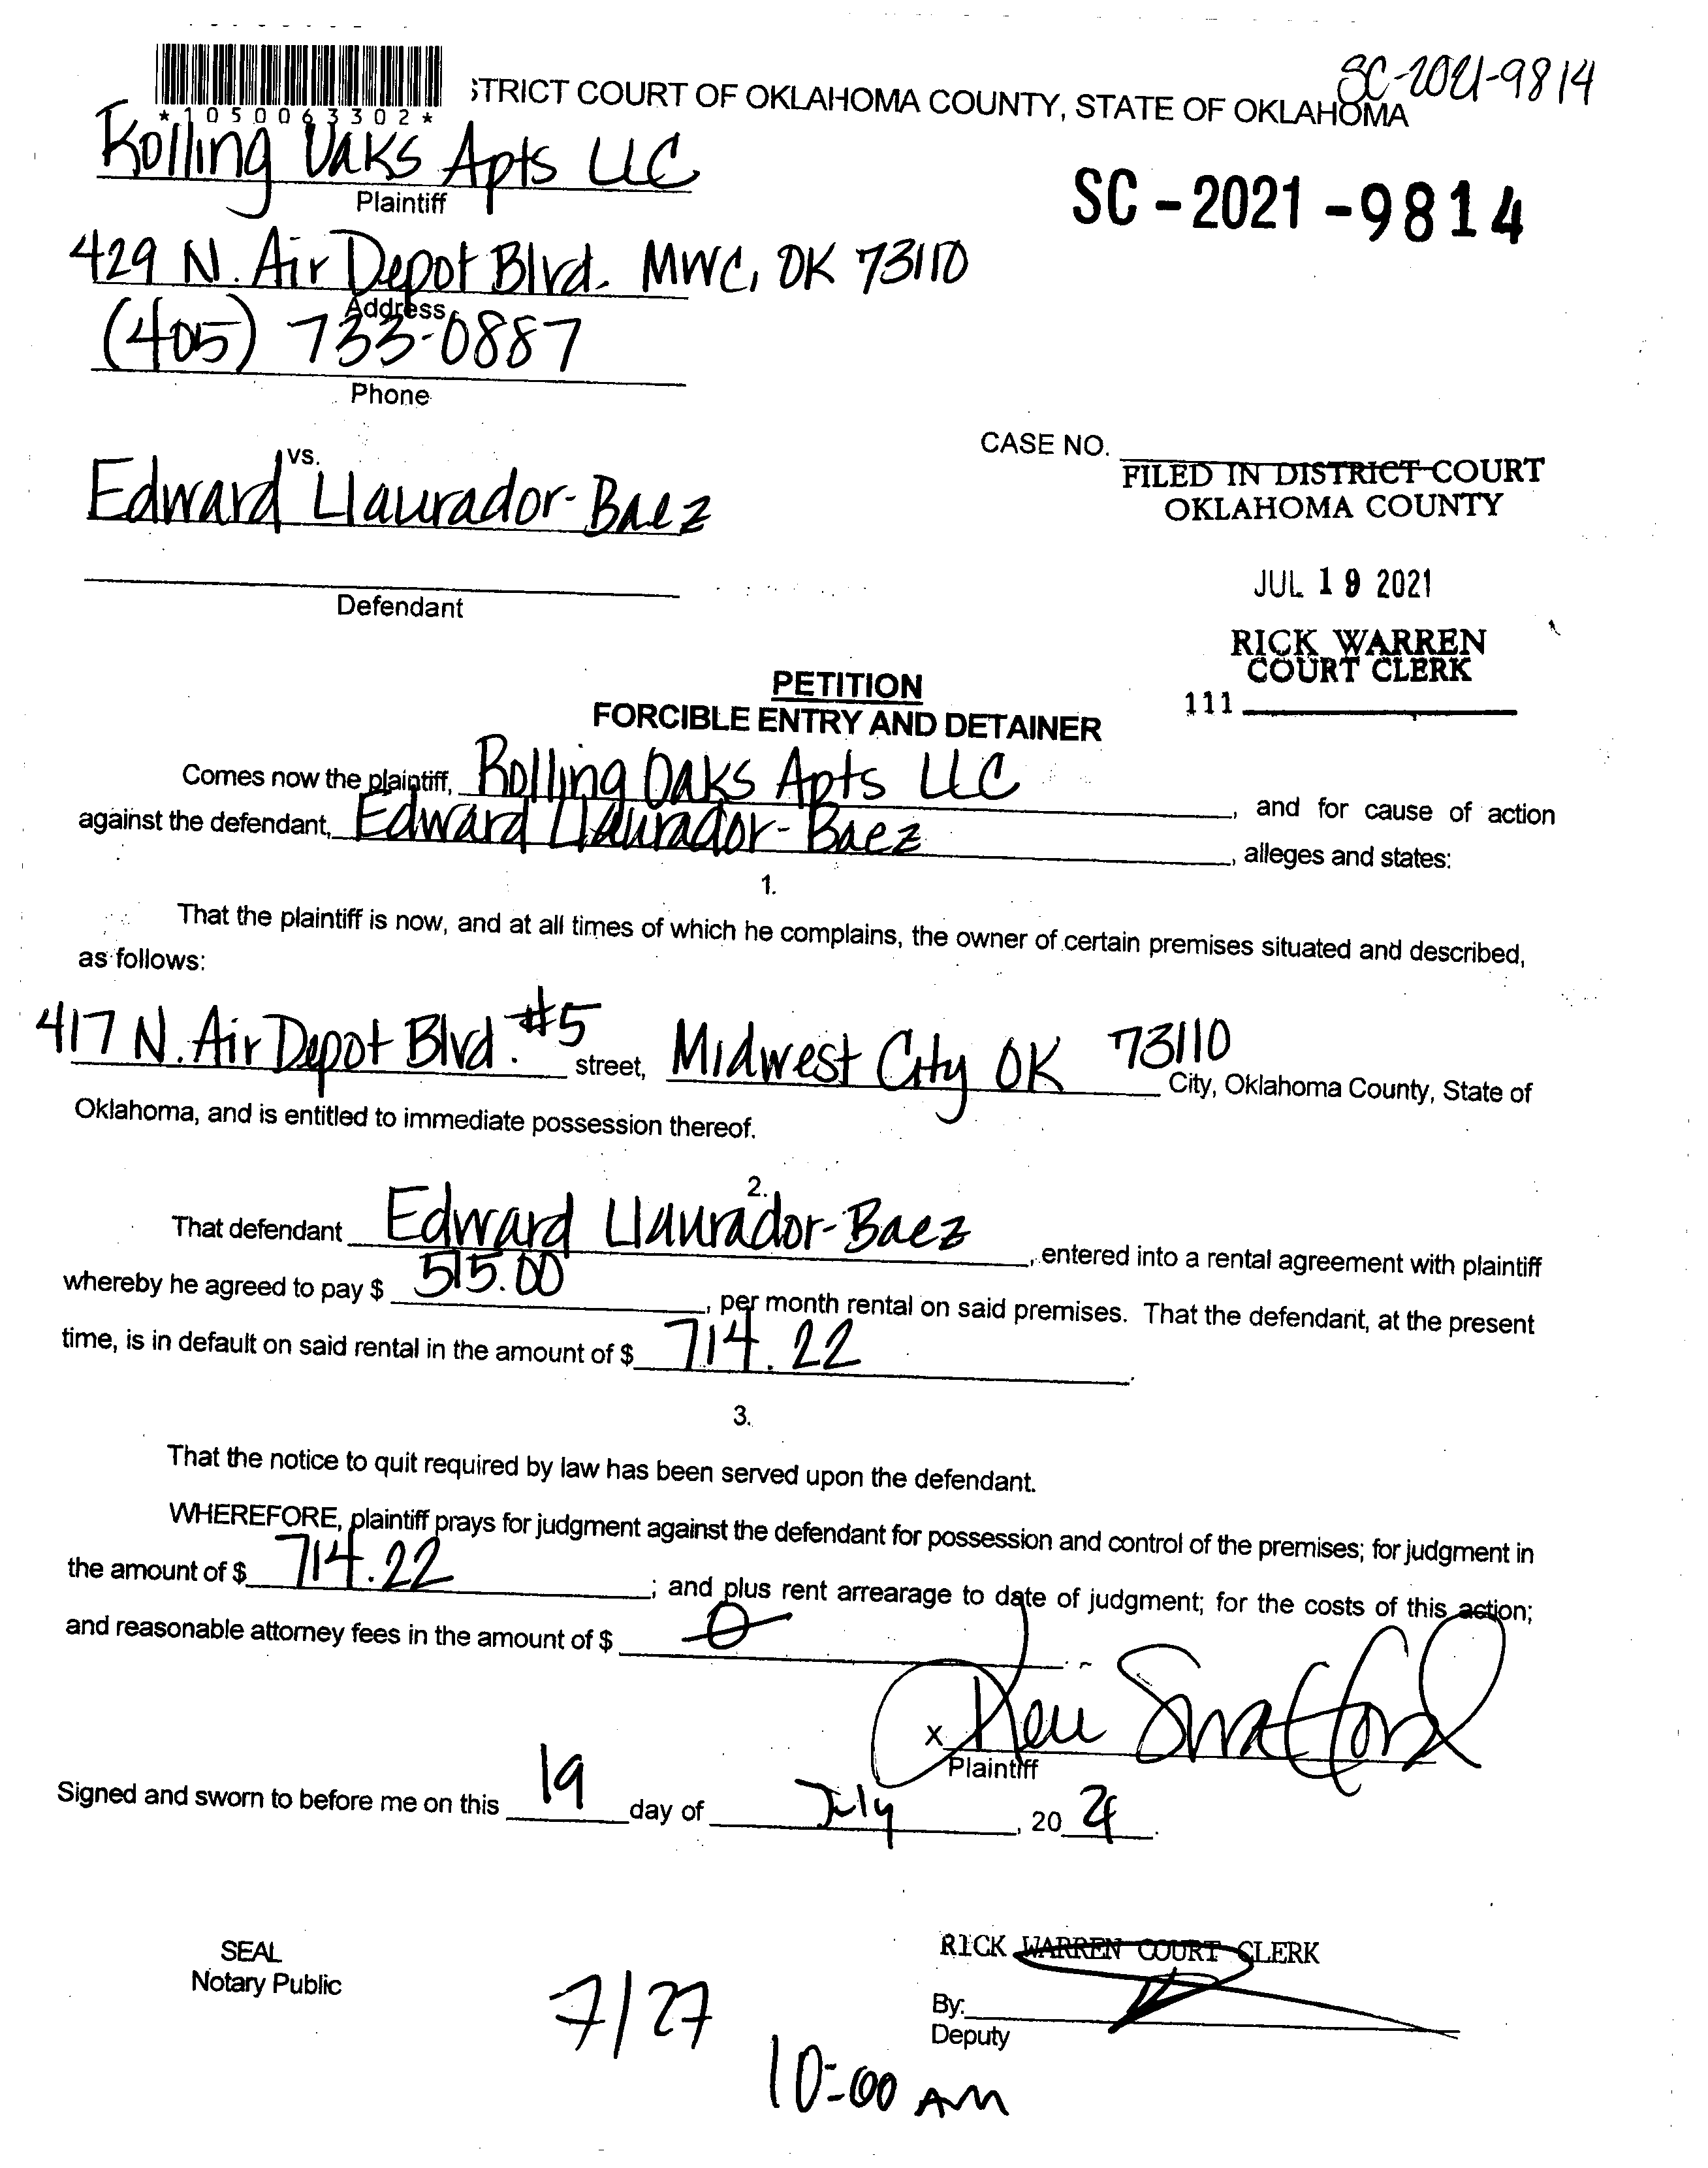 SC-2021-9814
STRICT COURT OF OKLAHOMA COUNTY, STATE OF OKLAHOMA
*1050063302*
Rolling Oaks Apts LLC
Plaintiff
SC-2021-9814
429 N. Air Depot Blvd. MWC, OK 73110
Address
(405) 733-0887
Phone
CASE NO.
vs.
Edward Llaurador-Baez
FILED IN DISTRICT COURT
OKLAHOMA COUNTY
JUL 19 2021
Defendant
RICK WARREN
COURT CLERK
111
PETITION
FORCIBLE ENTRY AND DETAINER
Comes now the plaintiff, Rolling Oaks Apts LLC, and for cause of action
against the defendant, Edward Llaurador-Baez, alleges and states:
1.
That the plaintiff is now, and at all times of which he complains, the owner of certain premises situated and described,
as follows:
417 N. Air Depot Blvd. #5 street, Midwest City OK 73110 City, Oklahoma County, State of
Oklahoma, and is entitled to immediate possession thereof.
2.
That defendant Edward Llaurador-Baez, entered into a rental agreement with plaintiff
whereby he agreed to pay $ 515.00, per month rental on said premises. That the defendant, at the present
time, is in default on said rental in the amount of $ 714.22.
3.
That the notice to quit required by law has been served upon the defendant.
WHEREFORE, plaintiff prays for judgment against the defendant for possession and control of the premises; for judgment in
the amount of $ 714.22; and plus rent arrearage to date of judgment; for the costs of this action;
and reasonable attorney fees in the amount of $ 0
x
Plaintiff
Signed and sworn to before me on this 19 day of July, 2021.
SEAL
Notary Public
RICK WARREN COURT CLERK
By:
Deputy
7/27
10:00 AM